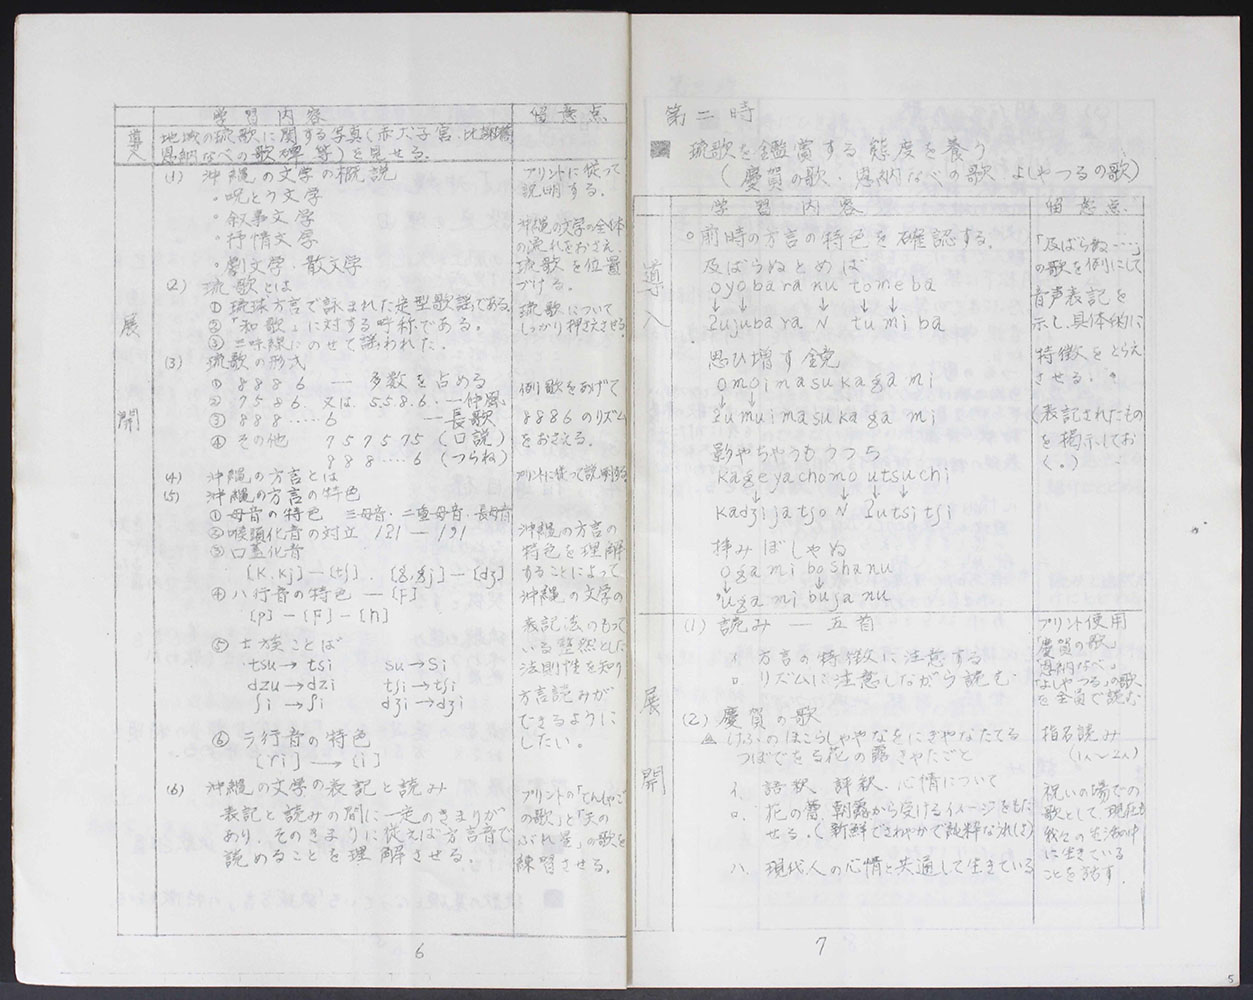 学習内容
留意点
導入
地域の琉歌に関する写真(赤犬子宮、比謝橋、
恩納なべの歌碑等)を見せる。
展開
(1) 沖縄の文学の概説
・呪とう文学
・叙事文学
・抒情文学
・劇文学・散文学
プリントに従って
説明する。
沖縄の文学の全体
の流れをおさえ、
琉歌を位置
づける。
(2) 琉歌とは
① 琉球方言で詠まれた定型歌謡である。
② 「和歌」に対する呼称である。
③ 三味線にのせて謡われた。
琉歌について
しっかり押さえさせる
(3) 琉歌の形式
① 8886 — 多数を占める
② 7586.又は.5586.—仲風
③ 888……6 —長歌
④ その他 757575(口説)
988……6(つらね)
例歌をあげて
8886のリズム
をおさえる。
(4) 沖縄の方言とは
プリントに従って説明する
(5) 沖縄の方言の特色
① 母音の特色 三母音・二重母音・長母音
② 喉頭化音の対立 /2/ — /9/
③ 口蓋化音
[K.Kj]—[tʃ] . [g.gj]—[dʒ]
④ ハ行音の特色 —[F]
[p]—[F]—[h]
⑤ 士族ことば
tsu→tsi su→Si
dzu→dzi tʃi→tʃi
ʃi→ʃi dʒi→dʒi
⑥ ラ行音の特色
[ri]→[i]
沖縄の方言の
特色を理解
することによって
沖縄の文学の
表記法のもって
いる整然とした
法則性を知り
方言読みが
できるように
したい。
(6) 沖縄の文学の表記と読み
表記と読みの間に一定のきまりが
あり、そのきまりに従えば方言音で
読めることを理解させる。
プリントの「てんしゃご
の歌」と「天の
ぶれ星」の歌を
練習させる。
6
第二時
琉歌を鑑賞する態度を養う
(慶賀の歌・恩納なべの歌・よしやつるの歌)
学習内容
留意点
導入
○前時の方言の特色を確認する。
及ばらぬとめば
oyobaranu tomeba
↓ ↓ ↓ ↓
2ujubara N tumiba
思ひ増す鏡
omoimasukagami
↓ ↓
2umuimasukagami
影やちやうもうつち
kageyachomo utsuchi
↓ ↓ ↓ ↓
kadʒijatʃo N 2utsitʃi
拝みぼしゃぬ
ogamiboshanu
↓
2ugamibuʃanu
「及ばらぬ…」
の歌を例にして
音声表記を
示し、具体的に
特徴をとらえ
させる。
(表記されたもの
を掲示してお
く。)
展開
(1) 読み — 五首
イ. 方言の特徴に注意する
ロ. リズムに注意しながら読む
プリント使用
「慶賀の歌」
「恩納なべ」
「よしやつる」の歌
を全員で読む
(2) 慶賀の歌
けふのほこらしゃやなをにぎやなたてる
つぼでをる花の露きやたごと
イ. 語釈、評釈、心情について
ロ. 花の蕾、朝露から受けるイメージをもた
せる。(新鮮でさわやかで純粋なうれしさ)
ハ. 現代人の心情と共通して生きている
指名読み
(1人〜2人)
祝いの場での
歌として、現在も
我々の生活の中
に生きている
ことを話す.
7
5